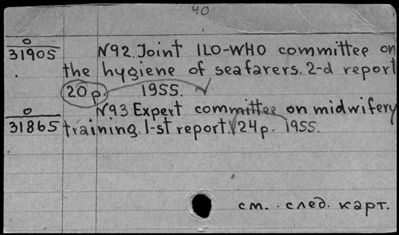 40
0
31905 N92. Joint ILO-WHO committee on
the hygiene of seafarers. 2-d report
20 p. 1955.
0
31865 N93 Expert committee on midwifery
training. 1-st report. 24 p. 1955.
см. след. карт.